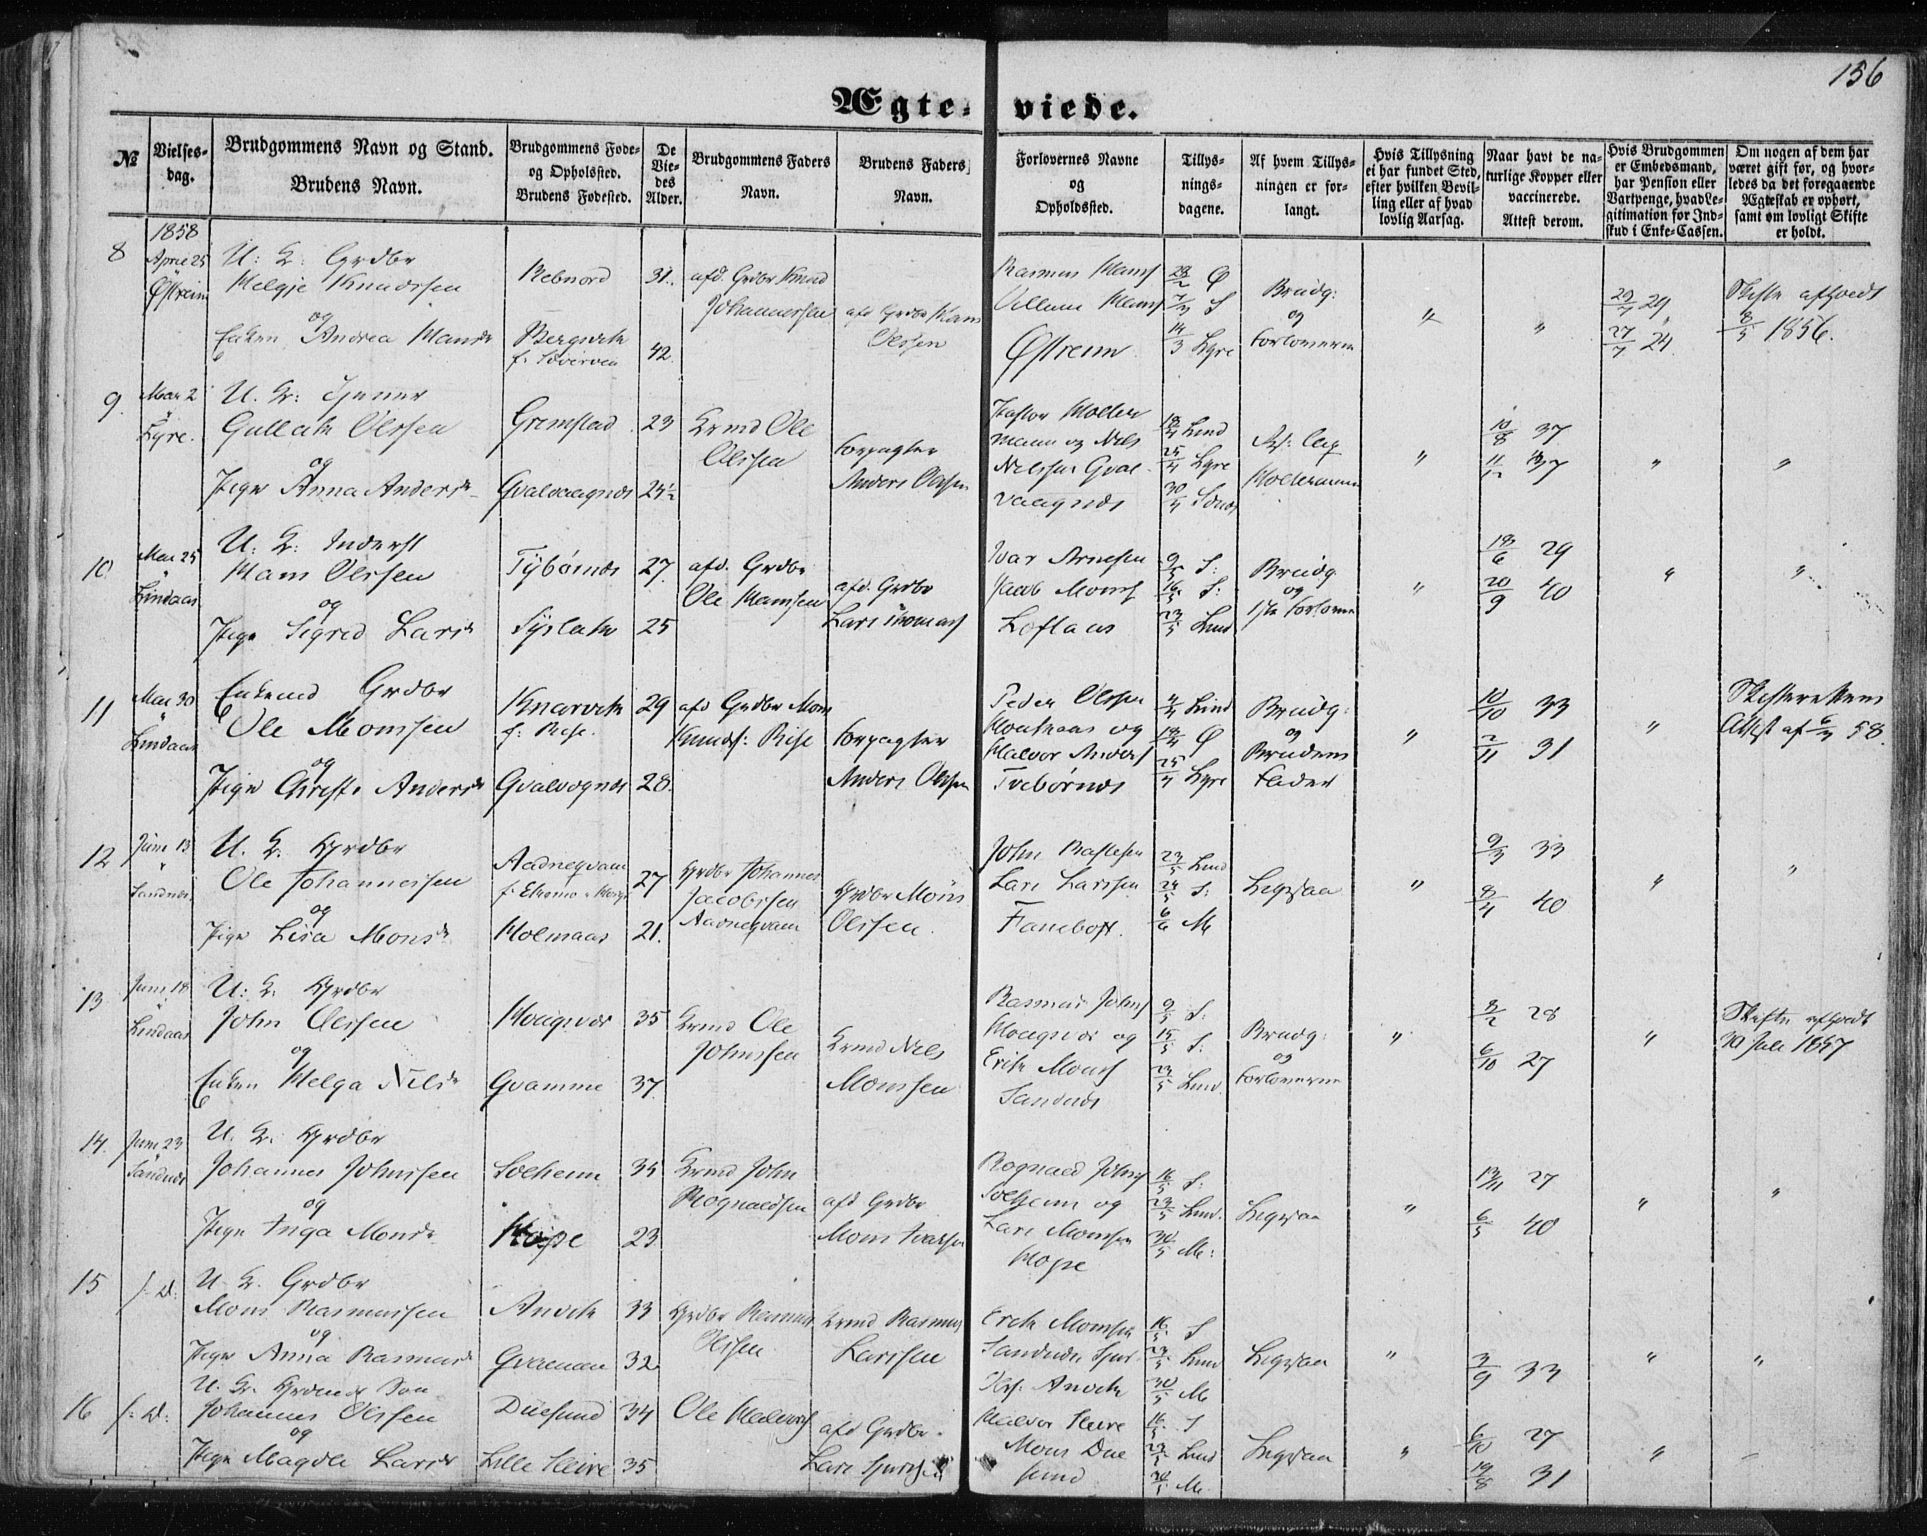 156
Ægte-viede.
№
Vielses-dag.
Brudgommens Navn og Stand.
Brudens Navn.
Brudgommens Føde-
og Opholdssted.
Brudens Fødested.
De Vie-des Alder.
Brudgommens Faders
Navn.
Brudens Faders
Navn.
Forlovernes Navne
og
Opholdssted.
Tillys-
nings-
dagene.
Af hvem Tillys-
ningen er for-
langt.
Hvis Tillysning
ei har fundet Sted,
efter hvilken Bevil-
ling eller af hvad
lovlig Aarsag.
Naar havt de na-
turlige Kopper eller
vaccinerede.
Attest derom.
Hvis Brudgommen
er Embedsmand,
har Pension eller
Vartpenge, hvad Le-
gitimation for Ind-
skud i Enke-Cassen.
Om nogen af dem har
været gift før, og hvor-
ledes da det foregaaende
Ægteskab er ophørt,
samt om lovligt Skifte
er holdt.
1858
8 April 25 Østreim
U: K: Grdbr
Helgje Knudssen
og
Enken Andrea Hansd
Rebnord 31
Bergsvik 42
afd. Grdbr Knud
Johannessen
afd Grdbr Hans
Olssen
Rasmus Hans
Villum Hans
Østreim
28/2 Ø
7/3 S
14/3 Lyre
Brudg:
og
Forloverne
" "
29/7 29
27/7 24
Skifte afholdt
8/5 1856.
9. Mai 2 Lyre.
U. K: Tjener
Gullak Olssen
og
Pige Anna Andersd
Grimstad 23
Gvalvaagnes 24½
Krmd Ole
Olssen
Forpagter
Anders Olssen
Pastor Kolter
mann og Nils
Nilssen Gval
vaagnes
18/4 Lind
25/4 Lyre
30/4 Sand
Koltermann
"
10/8 37
11/12 37
" "
10 Mai 25 Lindaas
U: K: Inderst
Hans Olssen
og
Pige Sigrid Larsd
Tybørnes 27.
Syslak 25
afd. Grdbr
Ole Hanssen
afd. Grdbr
Lars Thomas
Ivar Arnesen
Jacob Mons
Loftaas
9/5 S:
16/5 S:
23/5 Lind
Brudg
og
1ste Forlover
"
18/6 29
20/9 40
" "
11 Mai 30 Lindaas
Enkemd Grdbr
Ole Monssen
og
Pige Christi Andersd
Knarvik 29
f: Rise.
Gvalvognes 28.
afd Grdbr Mons
Knuds: Rise
Forpagter
Anders Olssen
Peder Olssen
Hontraas og
Halvor Anders
Tvebørnes
4/4 Lind
18/4 Ø
25/4 Lyre
Brudg:
og
Brudens
Fader
"
10/10 33
2/11 31
"
Skifterettens
Attest af 6/4 58.
12 Juni 13 Sandnes
U. K. Grdbr
Ole Johannessen
og
Pige Lisa Monsd
Aadneqvam 27
Holmaas 21.
Grdbr Johannes
Jacobssen
Aadneqvam
Grdbr Mons
Olssen.
John
Lars Larssen
Fanebost.
23/5 Lind
24/5 S:
6/6 M
Ligesaa
"
9/3 33
8/4 40
" "
13 Juni 18 Lindaas
U: K. Grdbr
John Olssen
og
Enken Helga Nilsd
Hougsvær 35
Gvamme 37.
Krmd Ole
Johnssen
Krmd Nils
Monssen
Rasmus Johns
Hougsvær og
Erik Mons
Sandnes
9/5 S:
15/5 S:
23/5 Lind.
Brudg:
og
Forloverne
"
8/2 28
6/10 27
"
Skifte afholdt
30 Juli 1857
14. Juni 23 Sandnes
U. K. Grdbr
Johannes Johnssen
og
Pige Inga Monsd
Solheim 35
Hope 23
Krmd John
Rognaldsen
afd Grdbr
Mons Ivarssen
Rognald Johns
Solheim og
Lars Monssen
Hope
16/5 S:
23/5 Lind.
30/5 M:
Ligesaa
"
13/11 27
6/5 40
" "
15 s: D:
U. K. Grdbr
Mons Rasmussen
og
Pige Anna Rasmusd
Andvik 33
32
Grdbr Rasmus
Olssen
Krmd Rasmus
Larssen
Erik Monssen
Sandnes
Andvik
16/5 S
23/5 Lind
30/5 M
Ligesaa
"
3/9 33
" "
16 s: D:
U. K. Grdmds Søn
Johannes Olssen
og
Pige Magdli Larsd
Duesund 34
Lille Heire 35
Ole Halvors
afd Grdbr.
Lars
Halvor Heire
Mons Due
sund
16/5 S
23/5 Lind
30/5 M.
Ligesaa
"
6/10 27
19/8 31
" "